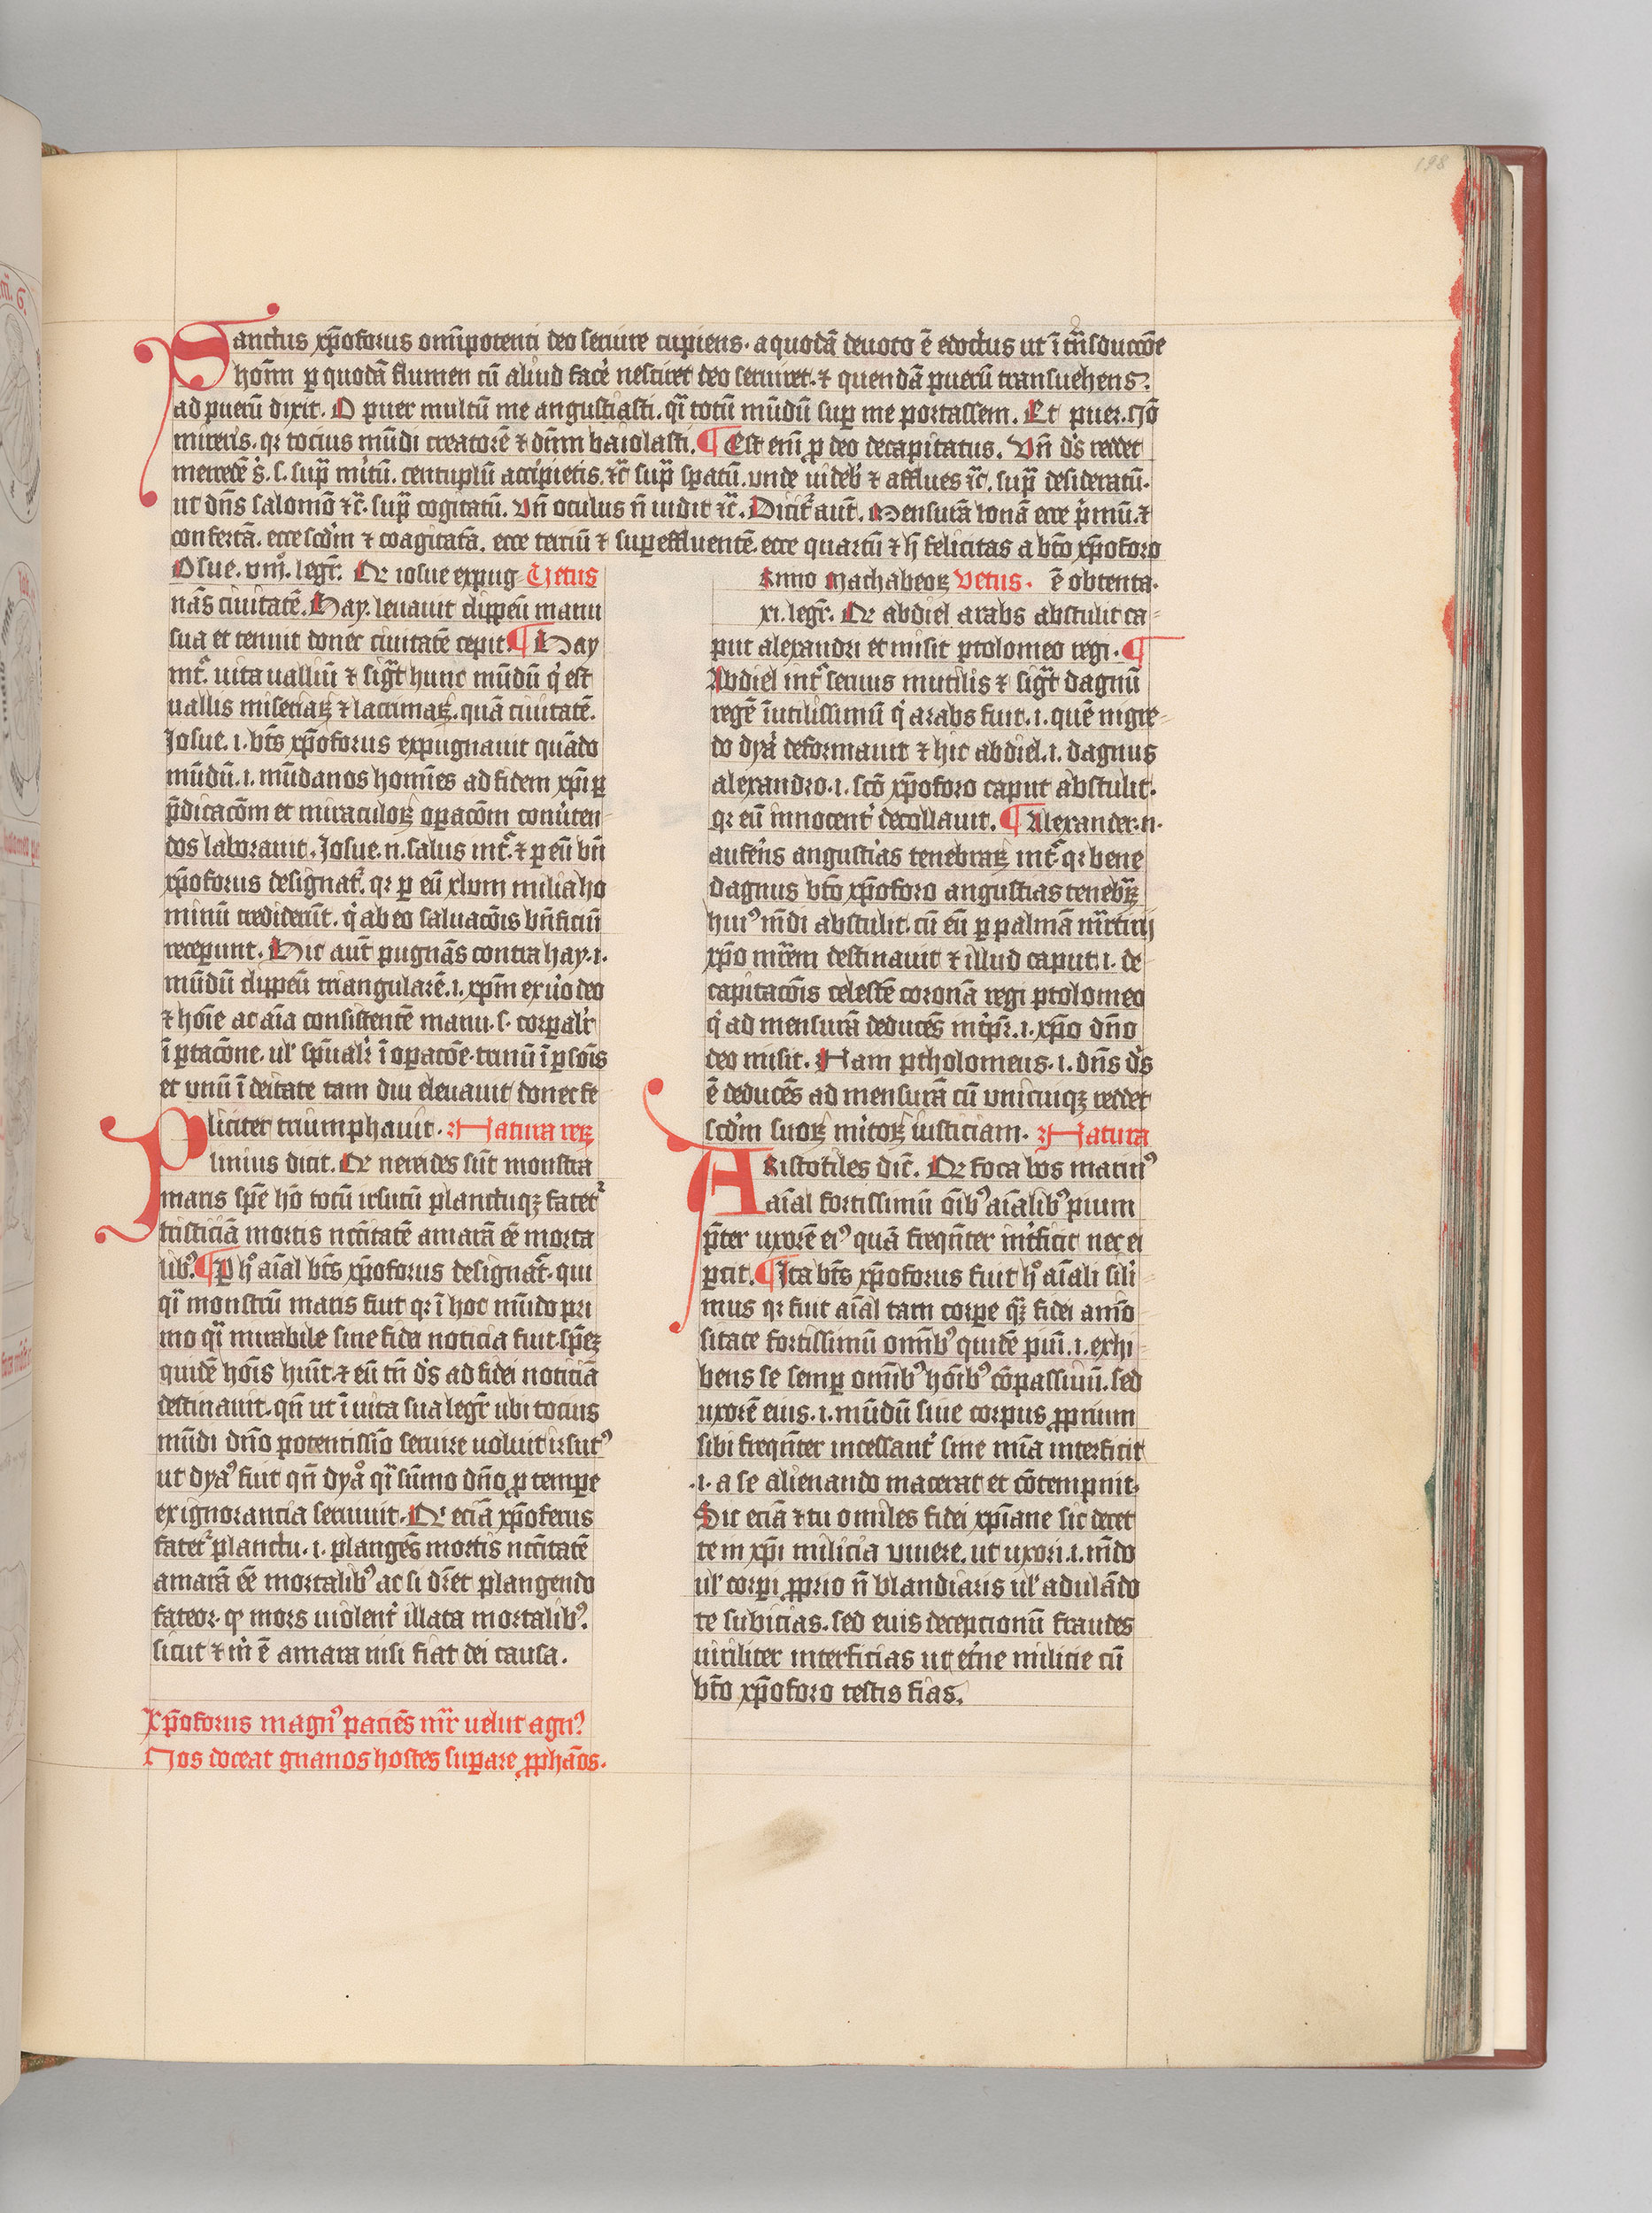 198
Sanctus xp̄oforus om̄ipotenti deo seruire cupiens. a quodā deuoto ē edoctus ut ī tn̄sduccōe
hoīm p quodā flumen cū aliud facere nesciret deo seruiret. ⁊ quendā puerū transuehens.
ad puerū dixit. O puer multū me angustiasti. qͣi totū mūdū sup me portassem. Et puer. Nō
mireris. qꝛ tocius mūdi creatorē ⁊ dn̄m baiolasti. ¶ Est enī p deo decapitatus. Vn̄ ds̄ reddet
mercedē s. s. supͣ mitū. centuplū accipietis. ⁊c̄ supͣ spatū. unde uideb ⁊ afflues ⁊c̄. supͣ desideratū.
ut dn̄s salomō ⁊c̄. supͣ cogitatū. Vn̄ oculus n̄ uidit ⁊c̄. Dicit aut̄. Mensurā bonā ecce pͥmū. ⁊
confertā. ecce scd̄m ⁊ coagitatā. ecce terciū ⁊ supeffluentē. ecce quartū ⁊ h̄ felicitas a bt̄o xp̄oforo
Osue. viij. legr̄. Qꝛ iosue expug- Vetus
nās ciuitatē. Hay. leuauit clippeū manu
sua et tenuit donec ciuitatē cepit ¶ Hay
int̄ͬ. uita ualliū ⁊ sigͣt hunc mūdū qͥ est
uallis miseriaꝝ ⁊ lacrimaꝝ. quā ciuitatē.
Josue. i. bt̄s xp̄oforus expugnauit quādo
mūdū. i. mūdanos homīes ad fidem xp̄i ꝑ
p̄dicacōm et miraculoꝝ opacōm cōuerten-
dos laborauit. Josue. n. salus int̄ͬ. ⁊ p eū bn̄
xp̄oforus designatͬ. qꝛ p eū xlvm milia ho
minū crediderūt. qͥ ab eo saluacōis bn̄ficiū
receperunt. Hic aut̄ pugnās contra hay. i.
mūdū clippeū triangularē. i. xp̄m ex uͦo deo
⁊ hoīe ac aīa consistentē manu. s. corpalr̄
ī ptacōne. ul' sp̄ualr̄ ī opacōe. trinū ī psōis
et unū ī deitate tam diu eleuauit donec fe
liciter triumphauit. Natura reꝝ
Plinius dicit. Qꝛ nereides sūt monstra
maris sp̄e hō totū irsutū planctuqꝫ fatetͬ
tristiciā mortis nccitatē amarā eē morta
libꝰ. ¶ P hͦ aīal bt̄s xp̄oforus designatͬ. qui
qͣi monstrū maris fuit qꝛ ī hoc mūdo pri
mo qͣi mirabile sine fidei noticia fuit. sp̄eꝫ
quidē hōis huīt. ⁊ eū tn̄ ds̄ ad fidei noticiā
destinauit. qn̄ ut ī uita sua legr̄ ubi tocius
mūdi dn̄o potentissīo seruire uoluit irsutꝰ
ut dyaꝰ fuit qn̄ dyaͦ qͣi sūmo dn̄o, p tempe
ex ignorancia seruiuit. Qꝛ eciā xp̄oferus
fatetͬ planctu. i. plangēs mortis nccitatē
amarā eē mortalibꝰ ac si dr̄et plangendo
fateor. qꝫ mors uiolent illata mortalibꝰ.
sicut ⁊ m̄ ē amara nisi fiat dei causa.
Xp̄oforus magnꝰ paciēs mr̄r uelut agnꝰ
Nos doceat gnanos hostes supare, pphāos.
Anno Machabeoꝝ Vetus. ē obtenta.
xi. legr̄. Qꝛ abdiel arabs abstulit ca-
put alexandri et misit ptolomeo regi. ¶
Abdiel int̄ͬ seruus mutilis ⁊ sigͣt dagnū
regē īutilissimū qͥ arabs fuit. i. quē nigre-
do dyaͥ deformauit ⁊ hic abdiel. i. dagnus
alexandro. i. scō xp̄oforo caput abstulit.
qꝛ eū innocent decollauit. ¶ Alexander. n.
auferēs angustias tenebraꝝ int̄ͬ. qꝛ bene
dagnus bt̄o xp̄oforo angustias tenebͣꝝ
huiꝰ mūdi abstulit. cū eū p palmā mr̄tirij
xp̄o mr̄em destinauit ⁊ illud caput. i. de-
capitacōis celestē coronā regi ptolomeo
qͥ ad mensurā deducēs int̄p̄r̄. i. xp̄o dn̄o
deo misit. Nam ptholomeus. i. dn̄s ds̄
ē deducēs ad mensurā cū unicuiqꝫ reddet
scd̄m suoꝝ mitoꝝ iusticiam. Natura
Aristotiles dic̄. Qꝛ foca bos marinꝰ
aīal fortissimū oībꝰ aīalibꝰ pium
p̄ter uxorē eiꝰ quā freqn̄ter int̄ficit nec ei
pcit. ¶ Ita bt̄s xp̄oforus fuit hͦ aīali sili-
mus qꝛ fuit aīal tam corpe qͣꝫ fidei anīo
sitate fortissimū omībꝰ quidē piū. i. exhi-
bens se semp omībꝰ hoībꝰ cōpassiuū. sed
uxorē eius. i. mūdū siue corpus, pprium
sibi freqn̄ter incessant sine mīa interficit
.i. a se alienando macerat et cōtempnit.
Sic eciā ⁊ tu o miles fidei xp̄iane sic decet
te in xp̄i milicia uiuere. ut uxori. i. mūdo
ul' corpi, pprio n̄ blandiaris ul' adulādo
te subicias. sed euis decepcionū fraudes
uiriliter interficias ut et̄ne milicie cū
bt̄o xp̄oforo testis fias.